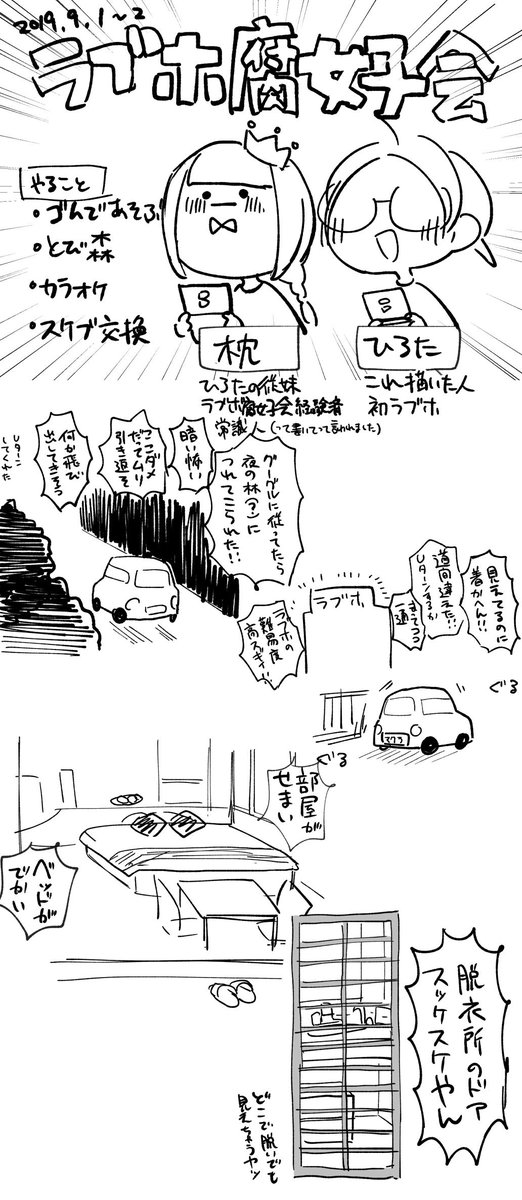 2019.9.1~2
ラブホ腐女子会
やること
・ころんであそぶ
・とび森
・カラオケ
・スケブ交換
枕
ひろたの従妹
ラブホ腐女子会経験者
常識人(って書いてって言われました)
ひろた
これ描いた人
初ラブホ
グーグルに従ってたら
夜の林(?)に
つれてこられた!!
暗い怖い
ここダメ
だってムリ
引き返そ
何か飛び
出してきそう
Uターン
してくれた
見えてるのに
着かへん!!
道間違えた!!
Uターンするか
一通
ラブホ
ラブホの
難易度
高スギィ
ぐる
ぐる
部屋が
せまい
ベッドが
でかい
脱衣所のドア
スッケスケやん
どこで脱いでも
見えちゃうヤツ